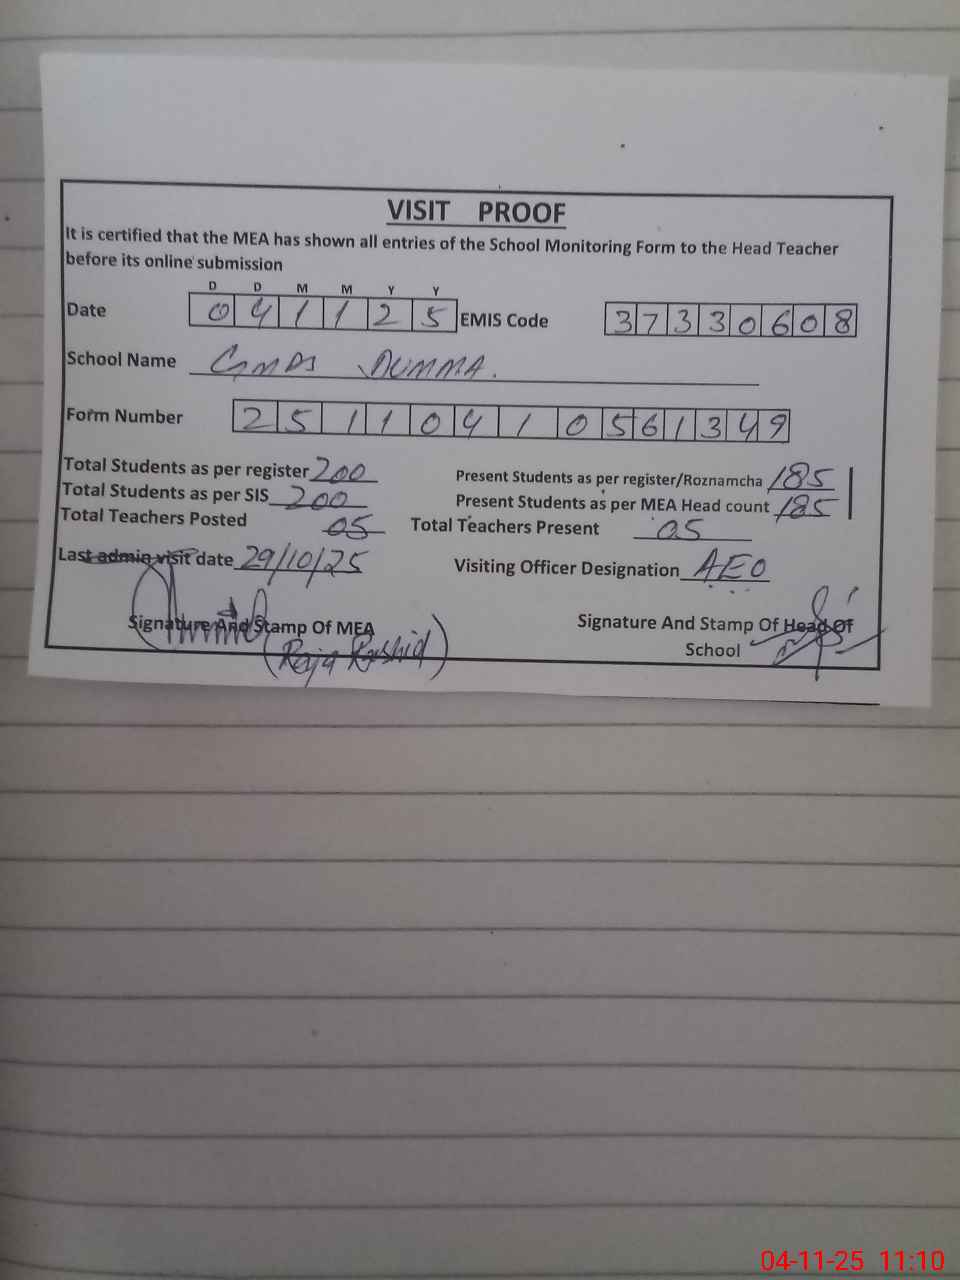 VISIT PROOF
It is certified that the MEA has shown all entries of the School Monitoring Form to the Head Teacher
before its online submission
D D M M Y Y
Date 0 4 1 1 2 5 EMIS Code 3 7 3 3 0 6 0 8
School Name GMPS DUMMA.
Form Number 2 5 1 1 0 4 1 0 5 6 1 3 4 9
Total Students as per register 200 Present Students as per register/Roznamcha 185
Total Students as per SIS 200 Present Students as per MEA Head count 185
Total Teachers Posted 05 Total Teachers Present 05
Last admin visit date 29/10/25 Visiting Officer Designation AEO
Signature And Stamp Of MEA Signature And Stamp Of Head Of
School
(Raja Rashid)
04-11-25 11:10